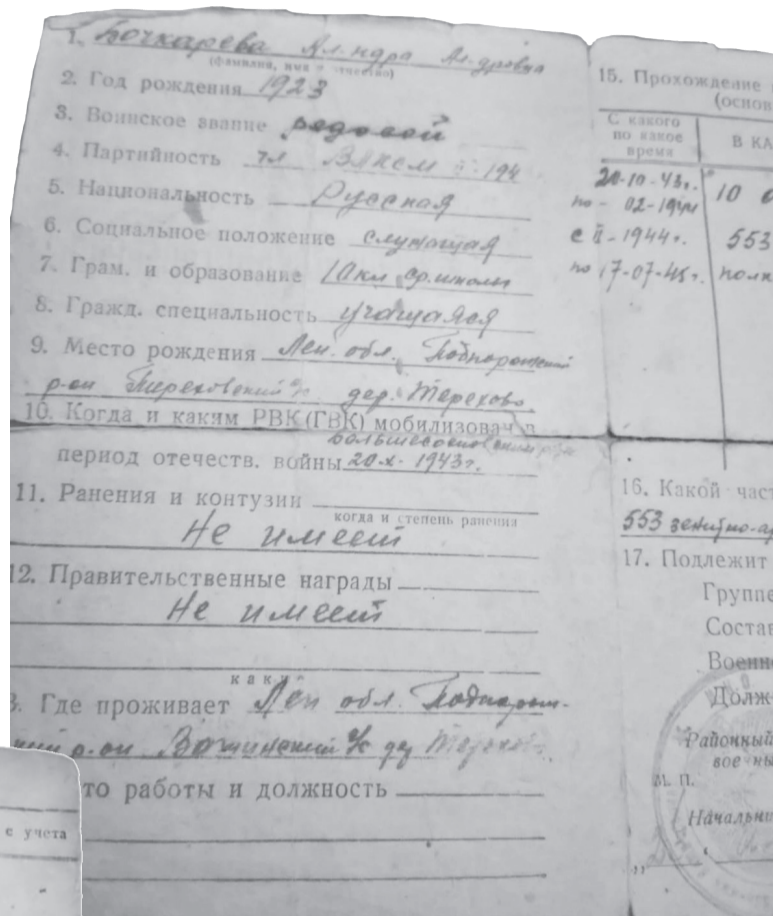 1. Бочкарева Ал-ндра Ал-дровна
(фамилия, имя и отчество)
2. Год рождения 1923
3. Воинское звание рядовой
4. Партийность чл ВЛКСМ 194
5. Национальность Русская
6. Социальное положение служащая
7. Грам. и образование 10 кл ср. школы
8. Гражд. специальность учащаяся
9. Место рождения Лен. обл. Подпорожский
р-он с/с дер. Терехово
10. Когда и каким РВК (ГВК) мобилизован в
период отечеств. войны 20-X-1943г.
11. Ранения и контузии
когда и степень ранения
Не имеет
12. Правительственные награды
Не имеет
как
Где проживает Лен обл. Подпорож-
ский р-он Важинский с/с дер Терехово
то работы и должность
с учета
15. Прохождение
(основ
С какого
по какое
время
В КА
20-10-43г.
по - 02-1944
10
с II-1944г.
553
по 17-07-45г.
полк
16. Какой част
553 зенитно-ар
17. Подлежит
Группе
Состав
Военно
Долж
Районный
вое ны
М. П.
Начальни